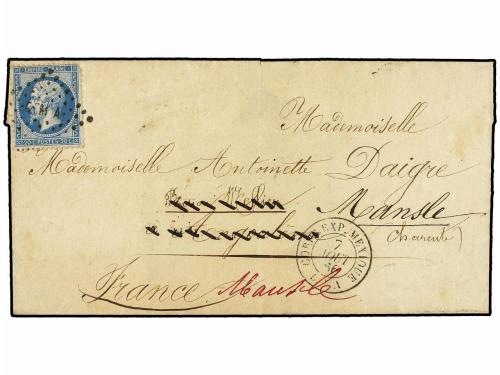 EMPIRE FRANC
20 C POSTES 20 C
Mademoiselle
Mademoiselle Antoinette Daigre
Mansle
(Charente)
CORR. EXP. MEXIQUE
7
AOUT
France Mansle